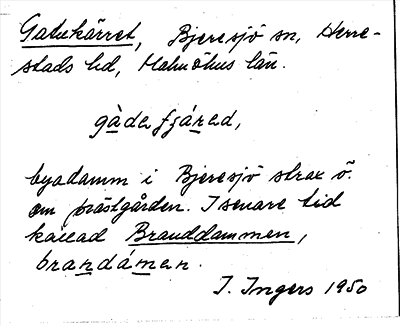 Gatukärret, Bjeresjö sn, Herre-
stads hd, Malmöhus län.
gàdefjáred,
byadamm i Bjeresjö strax ö.
om prästgården. I senare tid
kallad Branddammen,
brandámen.
I. Ingers 1950